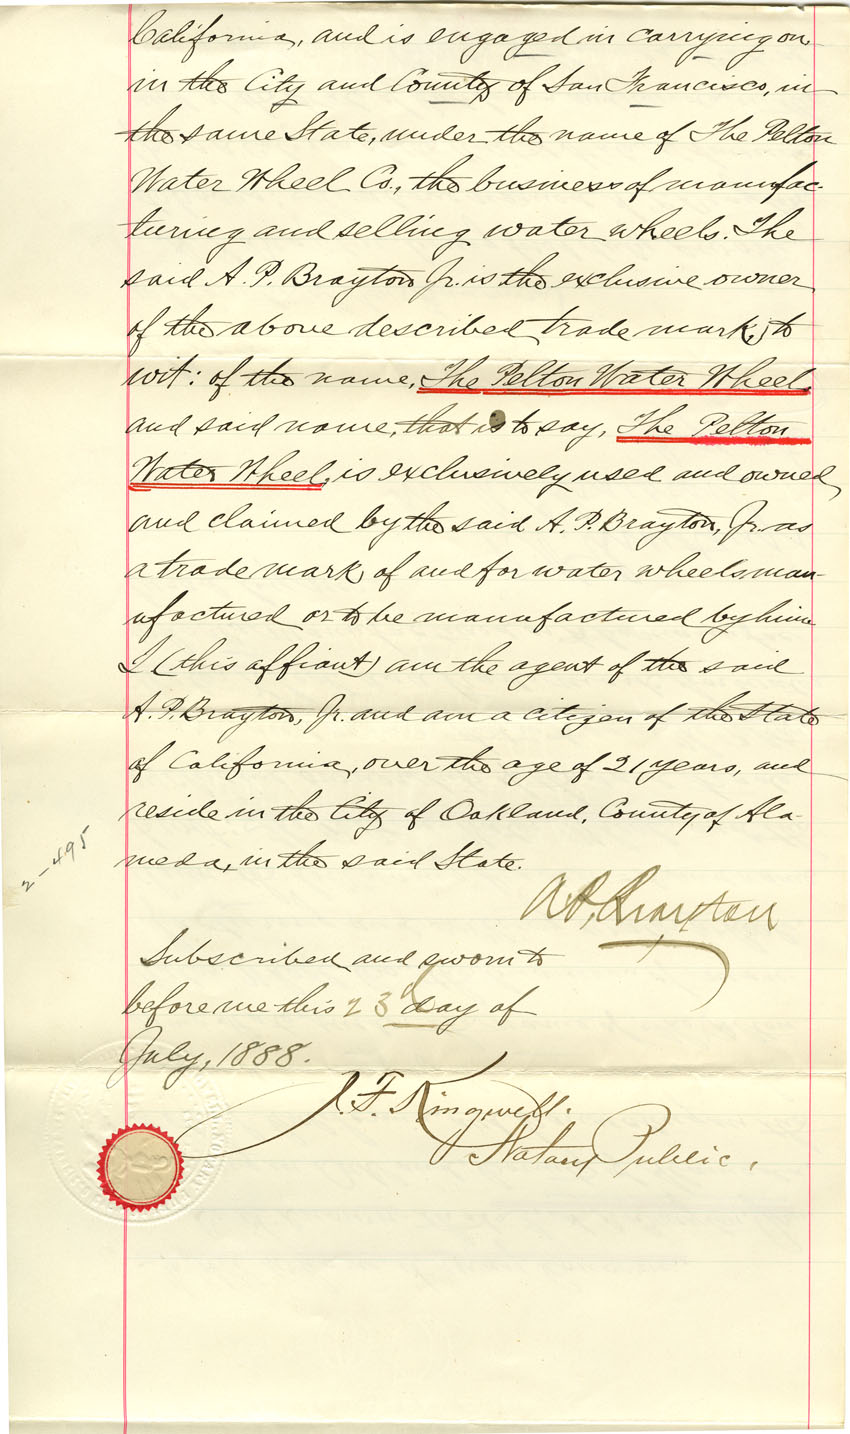 California, and is engaged in carrying on
in the City and County of San Francisco, in
the same State, under the name of The Pelton
Water Wheel Co., the business of manufac-
turing and selling water wheels. The
said A. P. Brayton Jr. is the exclusive owner
of the above described trade mark, to
wit: of the name, The Pelton Water Wheel,
and said name, that is to say, The Pelton
Water Wheel, is exclusively used and owned
and claimed by the said A. P. Brayton, Jr. as
a trade mark of and for water wheels man-
ufactured or to be manufactured by him
I (this affiant) am the agent of the said
A. P. Brayton, Jr. and am a citizen of the State
of California, over the age of 21 years, and
reside in the City of Oakland, County of Ala-
meda, in the said State.
2-495
A. P. Brayton
Subscribed and sworn to
before me this 23d day of
July, 1888.
J. F. Kingwell.
Notary Public.